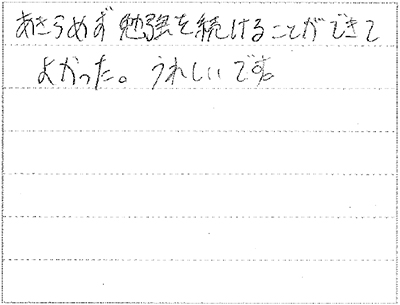 あきらめず勉強を続けることができて
よかった。うれしいです。